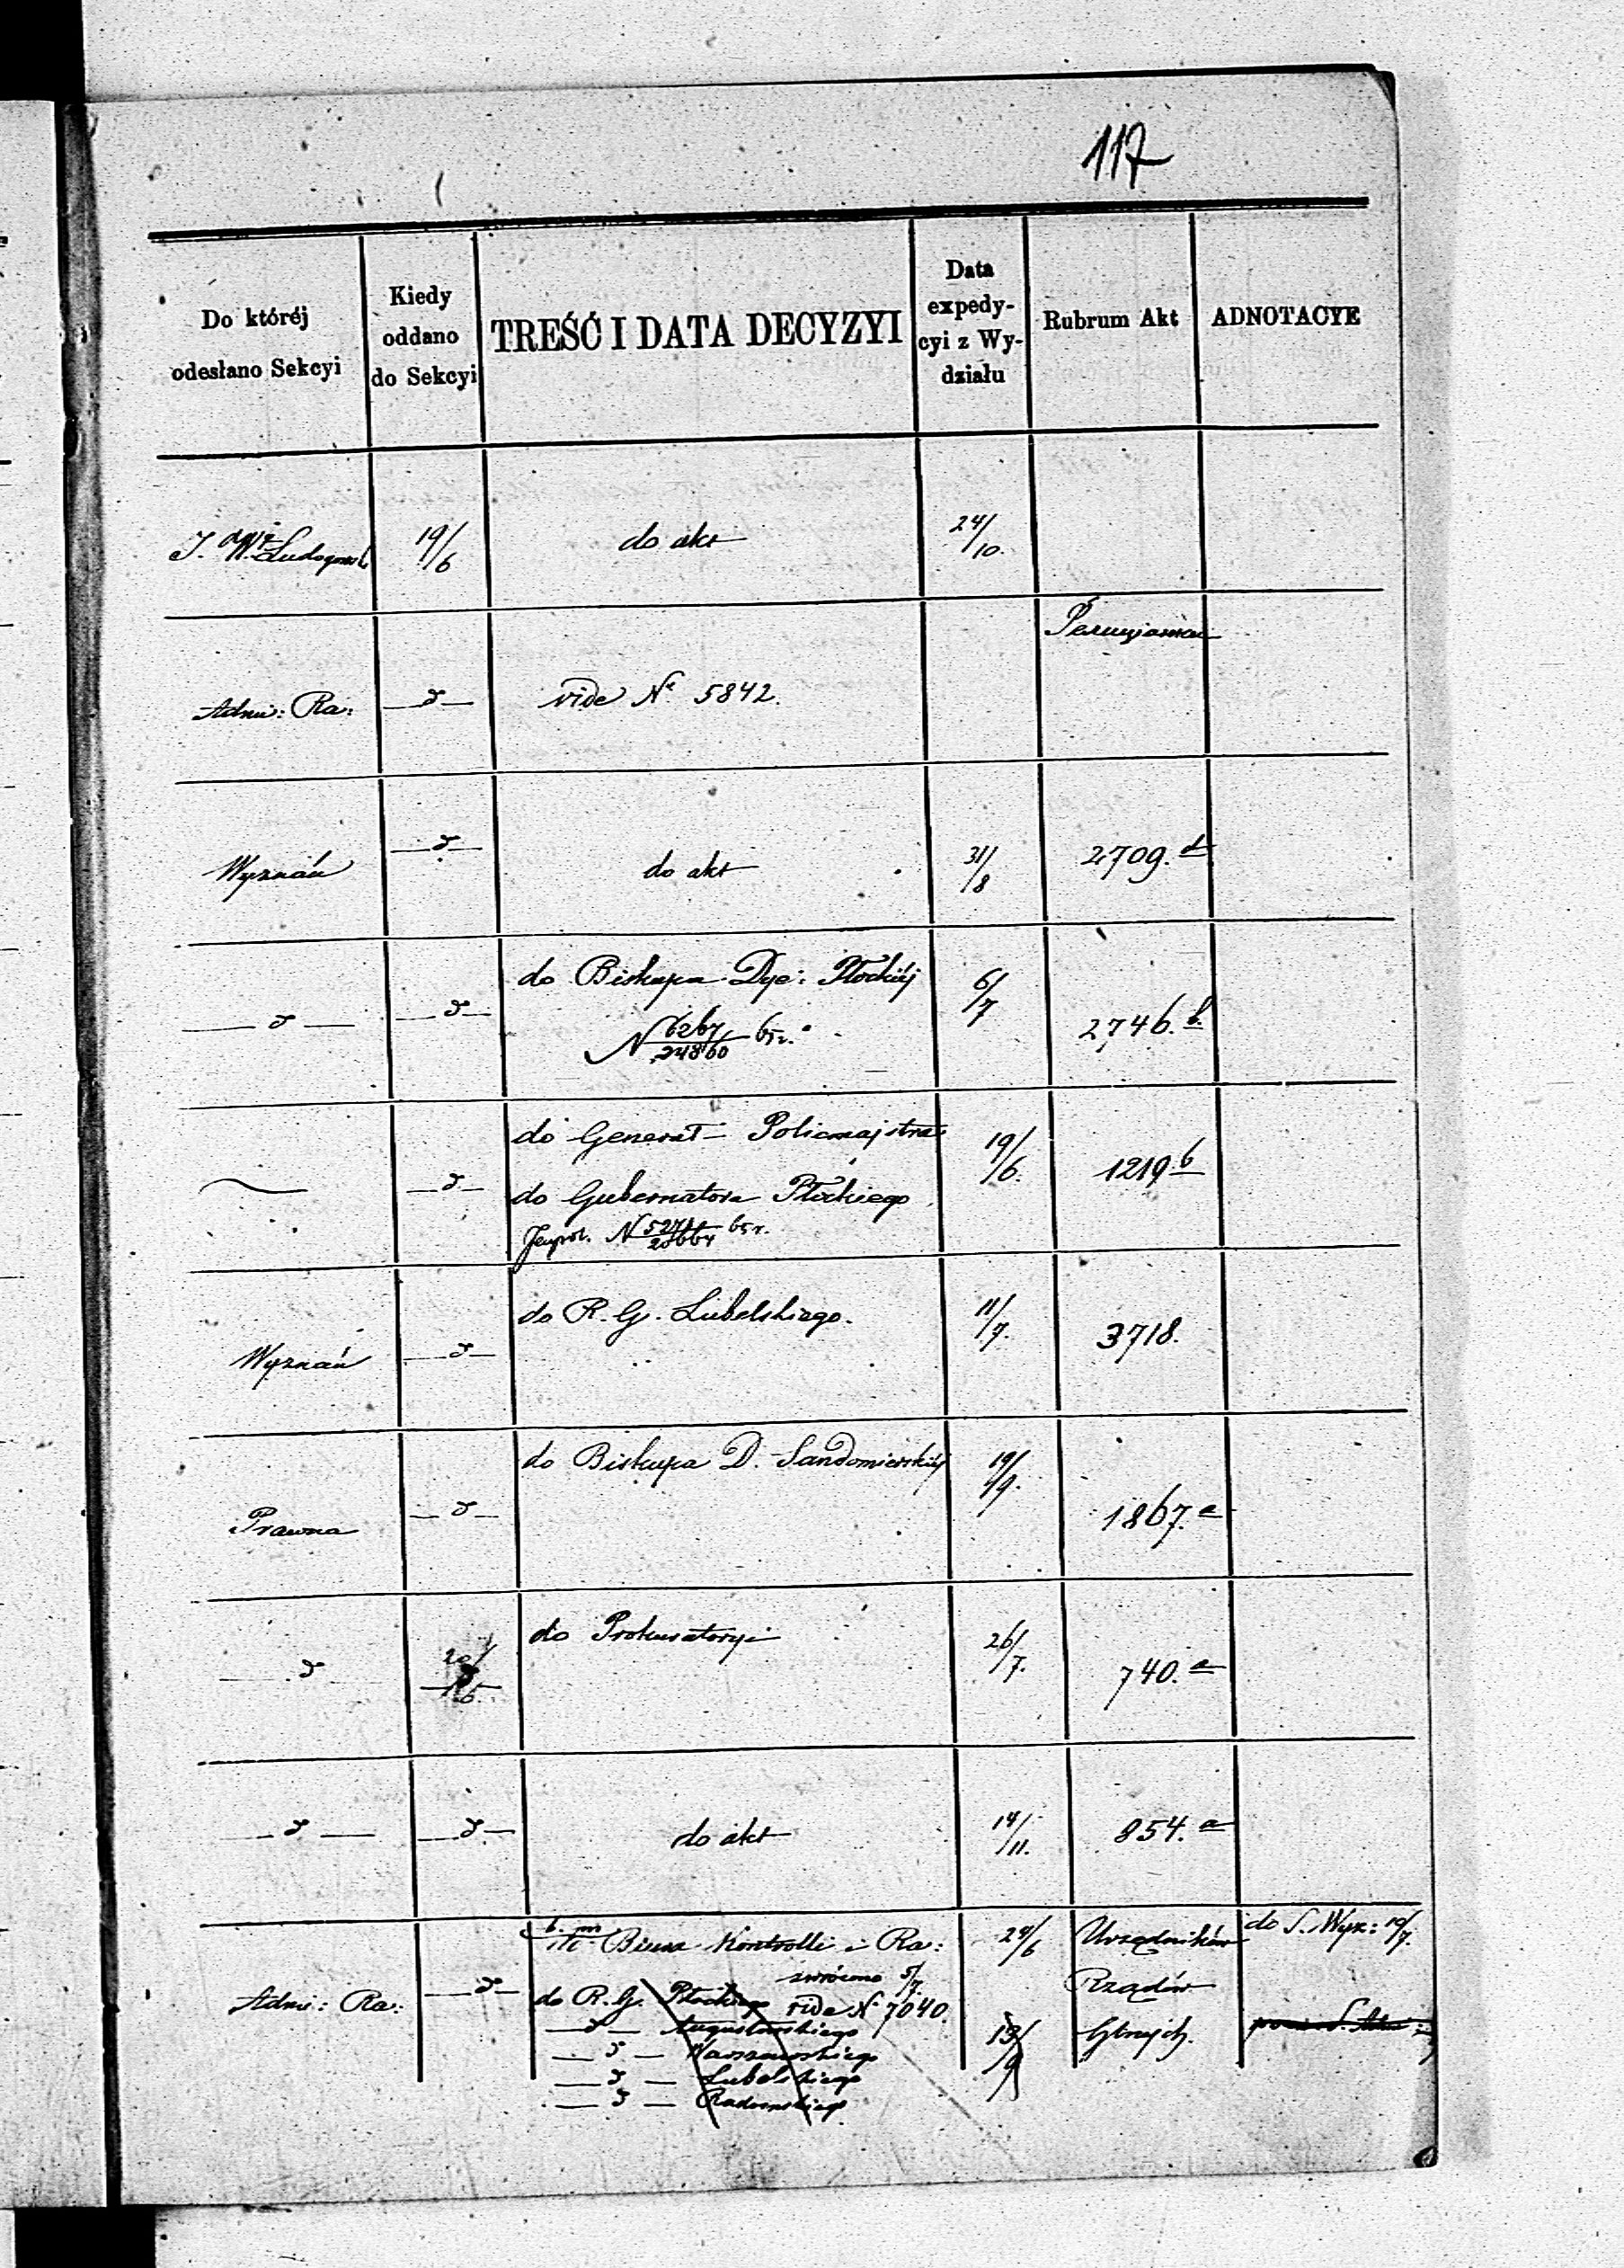 117
Do któréj
odesłano Sekcyi
Kiedy
oddano
do Sekcyi
TREŚĆ I DATA DECYZYI
Data
expedy-
cyi z Wy-
działu
Rubrum Akt
ADNOTACYE
19/6
do akt
24/10.
Admi: Ra:
—d—
vide Nr 5842.
Wyznań
—d—
do akt
31/8
2709. d
—d—
—d—
do Biskupa Dye: Płockiéj
N 6267/24860 65 r.
6/7
2746. b.
—d—
do Generał-Policmajstra
do Gubernatora Płockiego
N 65 r.
19/6.
1219. b
Wyznań
—d—
do R. G. Lubelskiego.
11/7.
3718.
Prawna
—d—
do Biskupa D. Sandomierskiéj
19/9.
1867. a
—d
20/6.
do Prokuratoryi
26/7.
740. a
—d—
—d—
do akt
14/11.
854. a
Admi: Ra:
—d—
Biura Kontrolli i Ra:
zwrócono 5/7.
do R. G. Płockiego vide Nr 7040.
—d— Augustowskiego
—d— Warszawskiego
—d— Lubelskiego
—d— Radomskiego
24/6
13/9
Urzędników
Rządów
Gbnych.
do S. Wyz: 19/7.